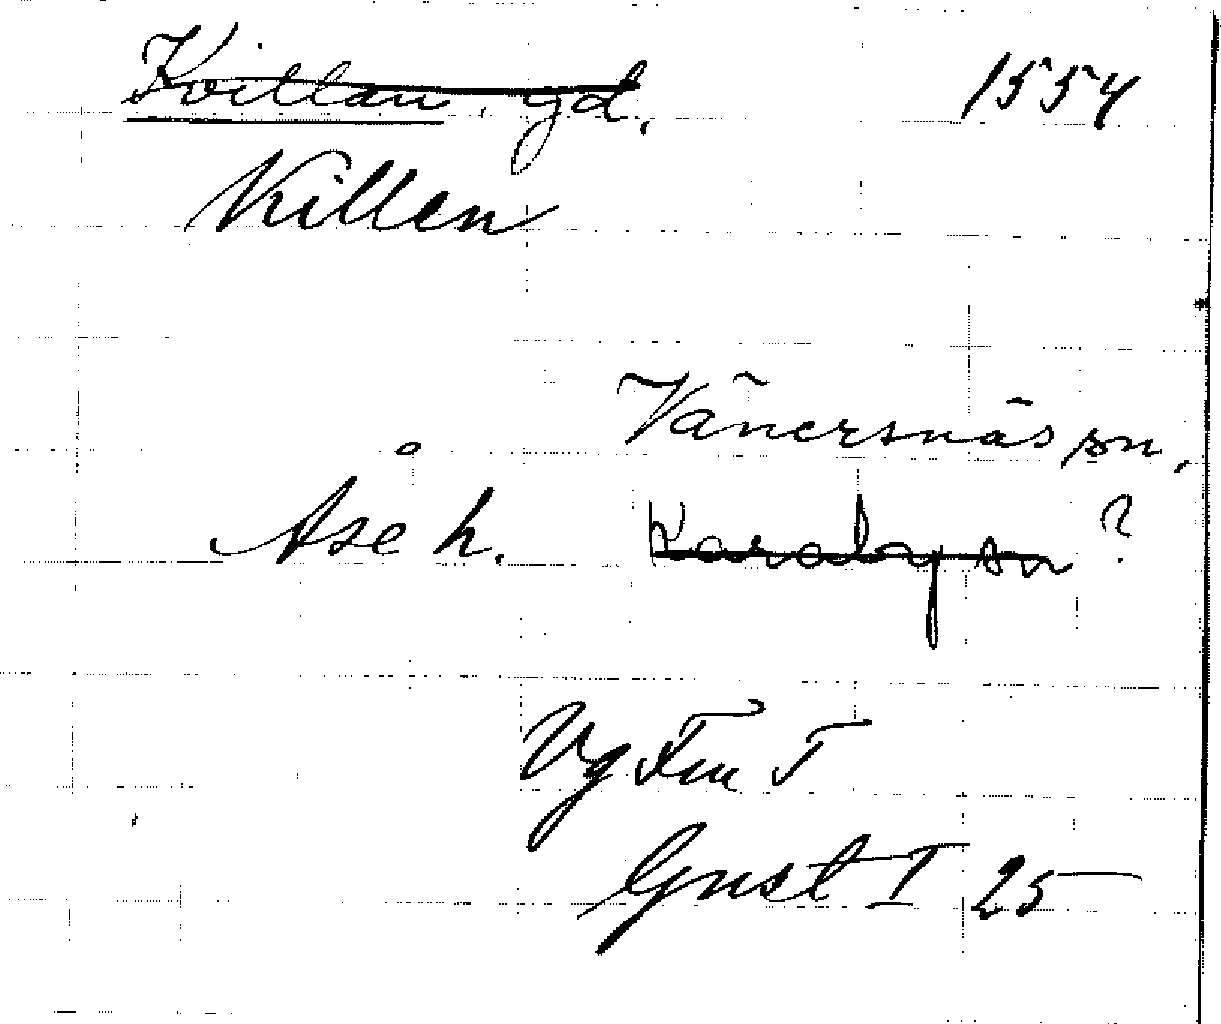 Kvillan, gd, 1554
Killen
Vänersnäs sn,
Åse h. Karaby sn ?
Vg
Gust I 25